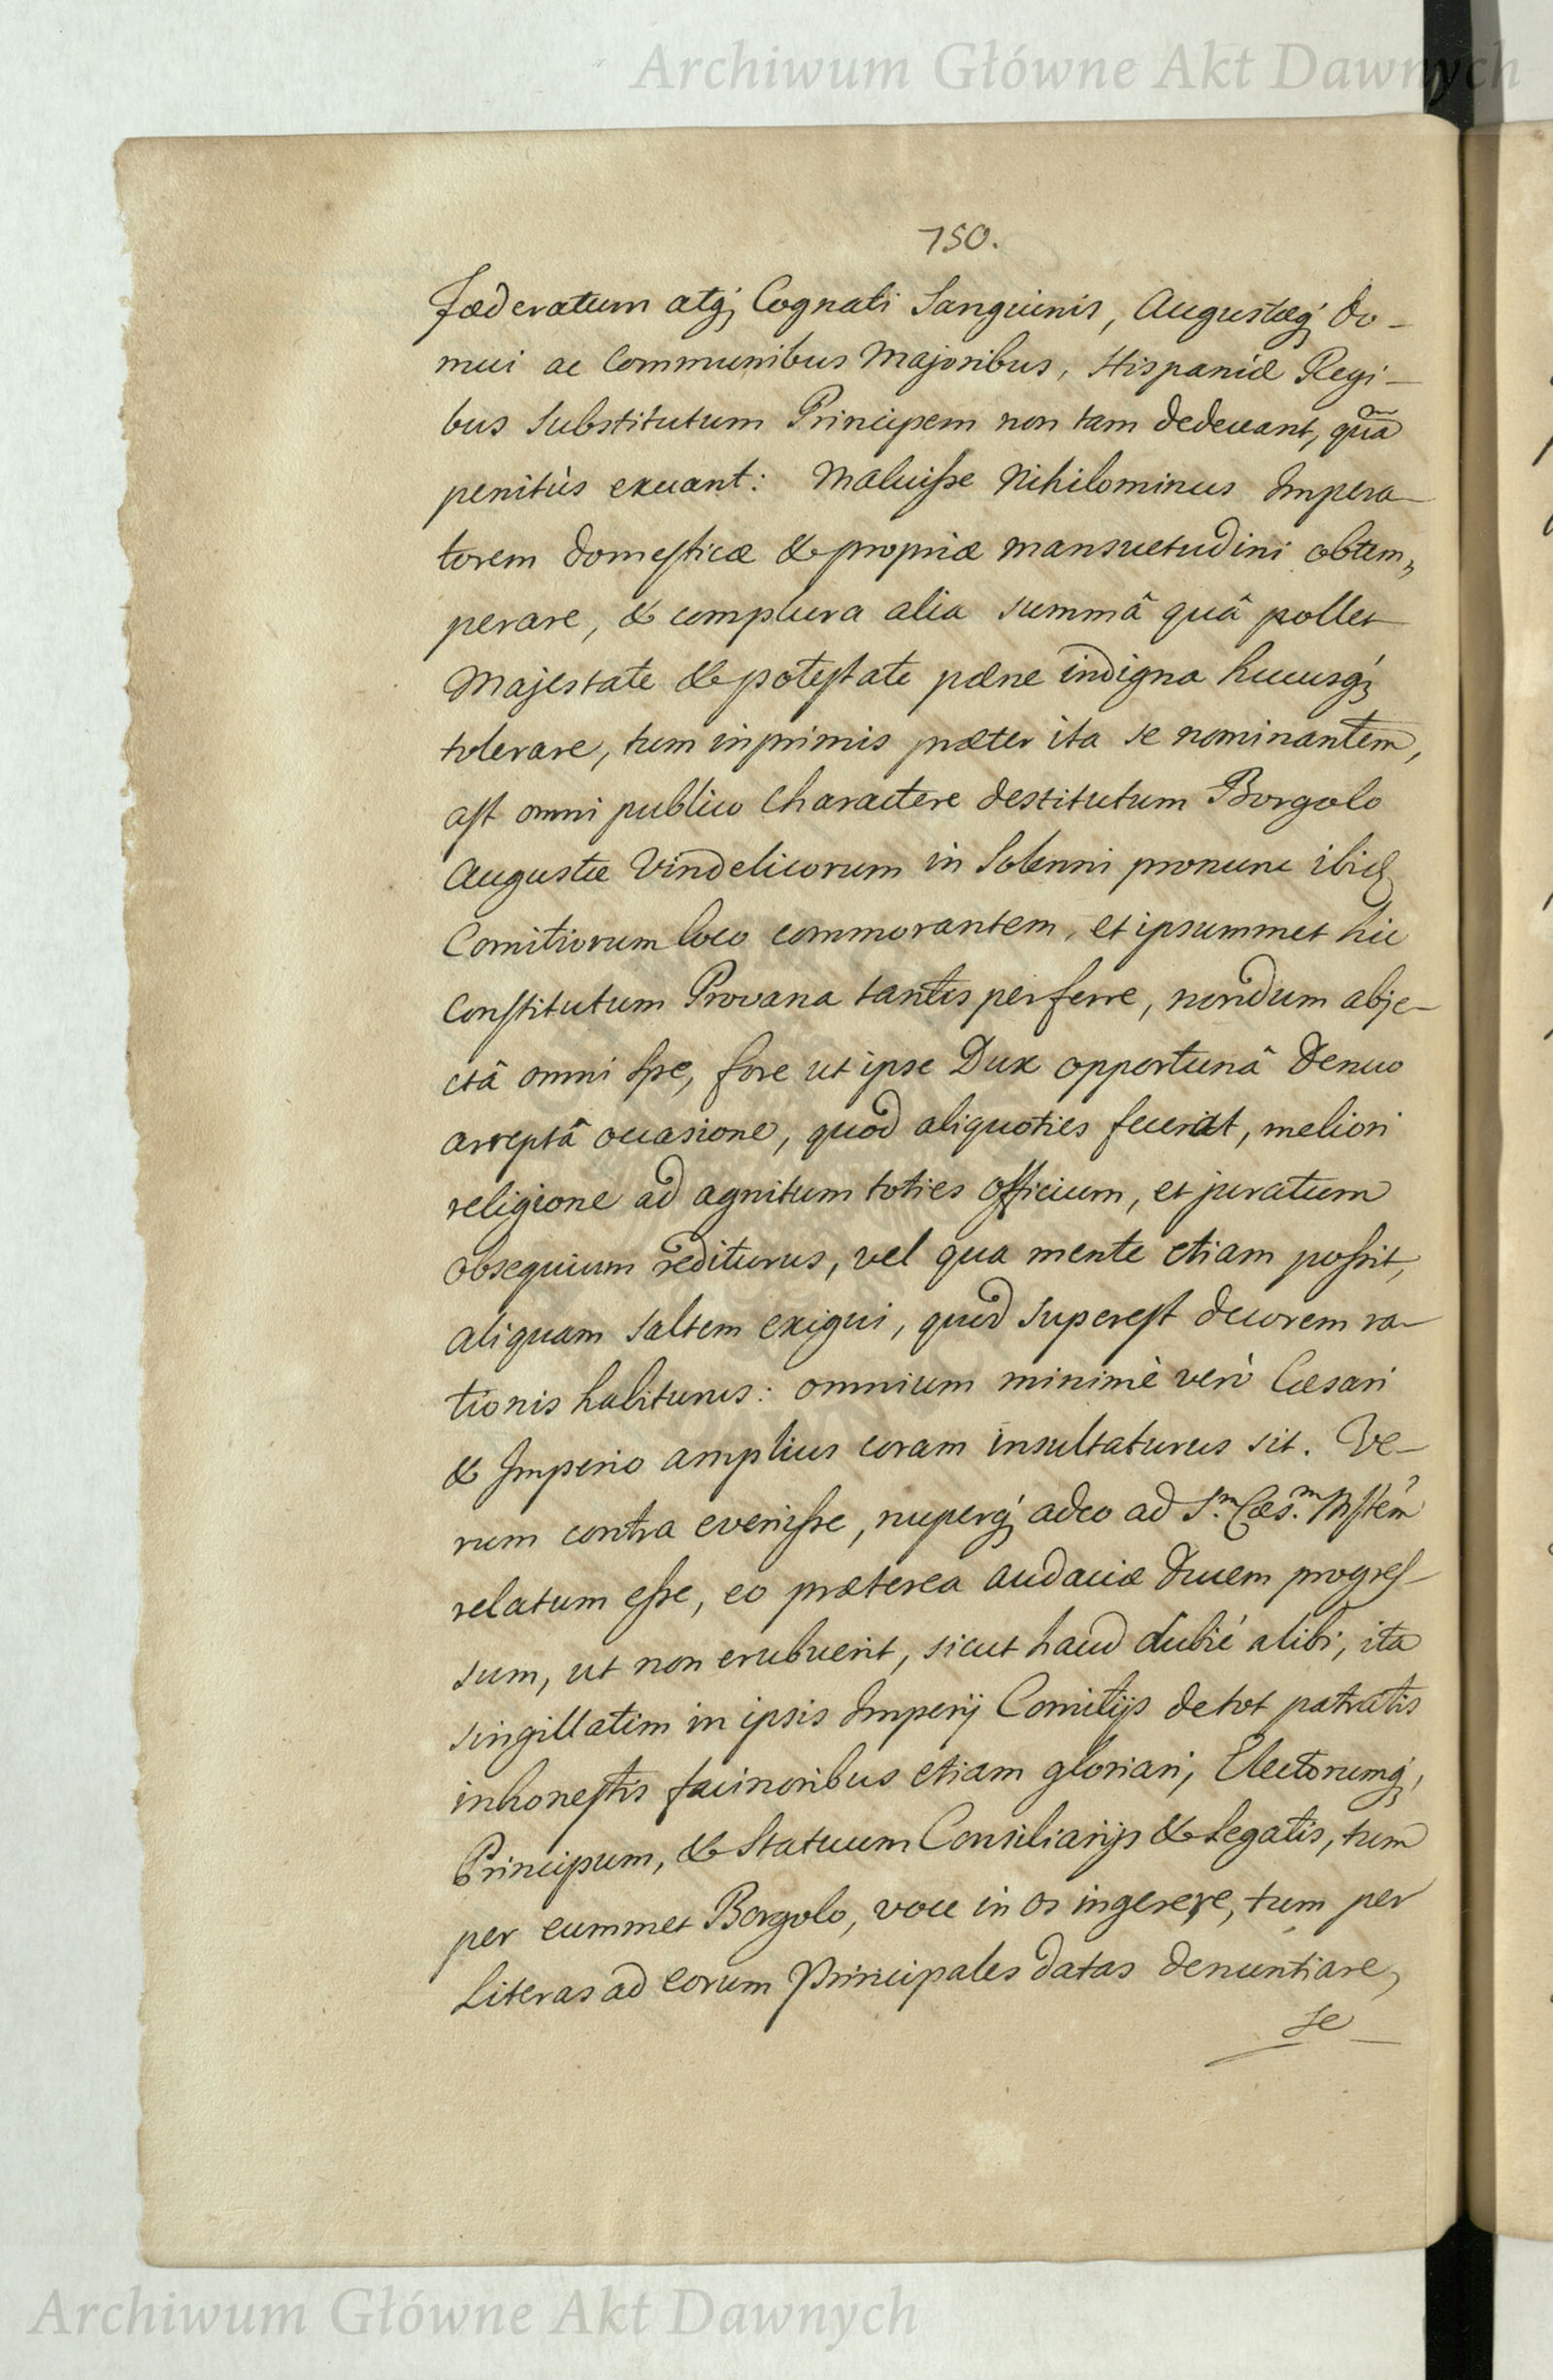 Archiwum Główne Akt Dawnych
750.
fœderatum atq; Cognati Sanguinis, Augustæq; do-
mui ac Communibus Majoribus, Hispaniæ Regi-
bus Substitutum Principem non tam dedeceant, quã
penitùs exuant: Maluisse Nihilominus Impera-
torem domesticæ & propriæ mansuetudini obtem„
perare, & complura alia summâ quâ pollet
Majestate & potestate pæne indigna hucusq;
tolerare, tum inprimis præter ita se nominantem,
ast omni publico Charactere destitutum Borgolo
Augustæ Vindelicorum in Solenni pronunc ibid
Comitiorum loco commorantem, et ipsummet hic
Constitutum Provana tantis perferre, nondum abje-
ctâ omni spe, fore ut ipse Dux opportunâ denuo
arreptâ occasione, quod aliquoties fecerat, meliori
religione ad agnitum toties officium, et juratum
obsequium rediturus, vel qua mente etiam possit,
aliquam saltem exigui, quod superest decorem ra-
tionis habiturus: omnium minimè verò Cæsari
& Imperio amplius coram insultaturus sit. Ve-
rum contra evenisse, nuperq; adeo ad S.m Cæs.m Mstem
relatum esse, eo præterea audaciæ Ducem progres-
sum, ut non erubuerit, sicut haud dubié alibi, ita
singillatim in ipsis Imperij Comitijs de tot patratis
inhonestis facinoribus etiam gloriari, Electorumq;
Principum, & Statuum Consiliarijs & Legatis, tum
per eummet Borgolo, voce in os ingerere, tum per
Literas ad eorum Principales datas denuntiare,
se
Archiwum Główne Akt Dawnych